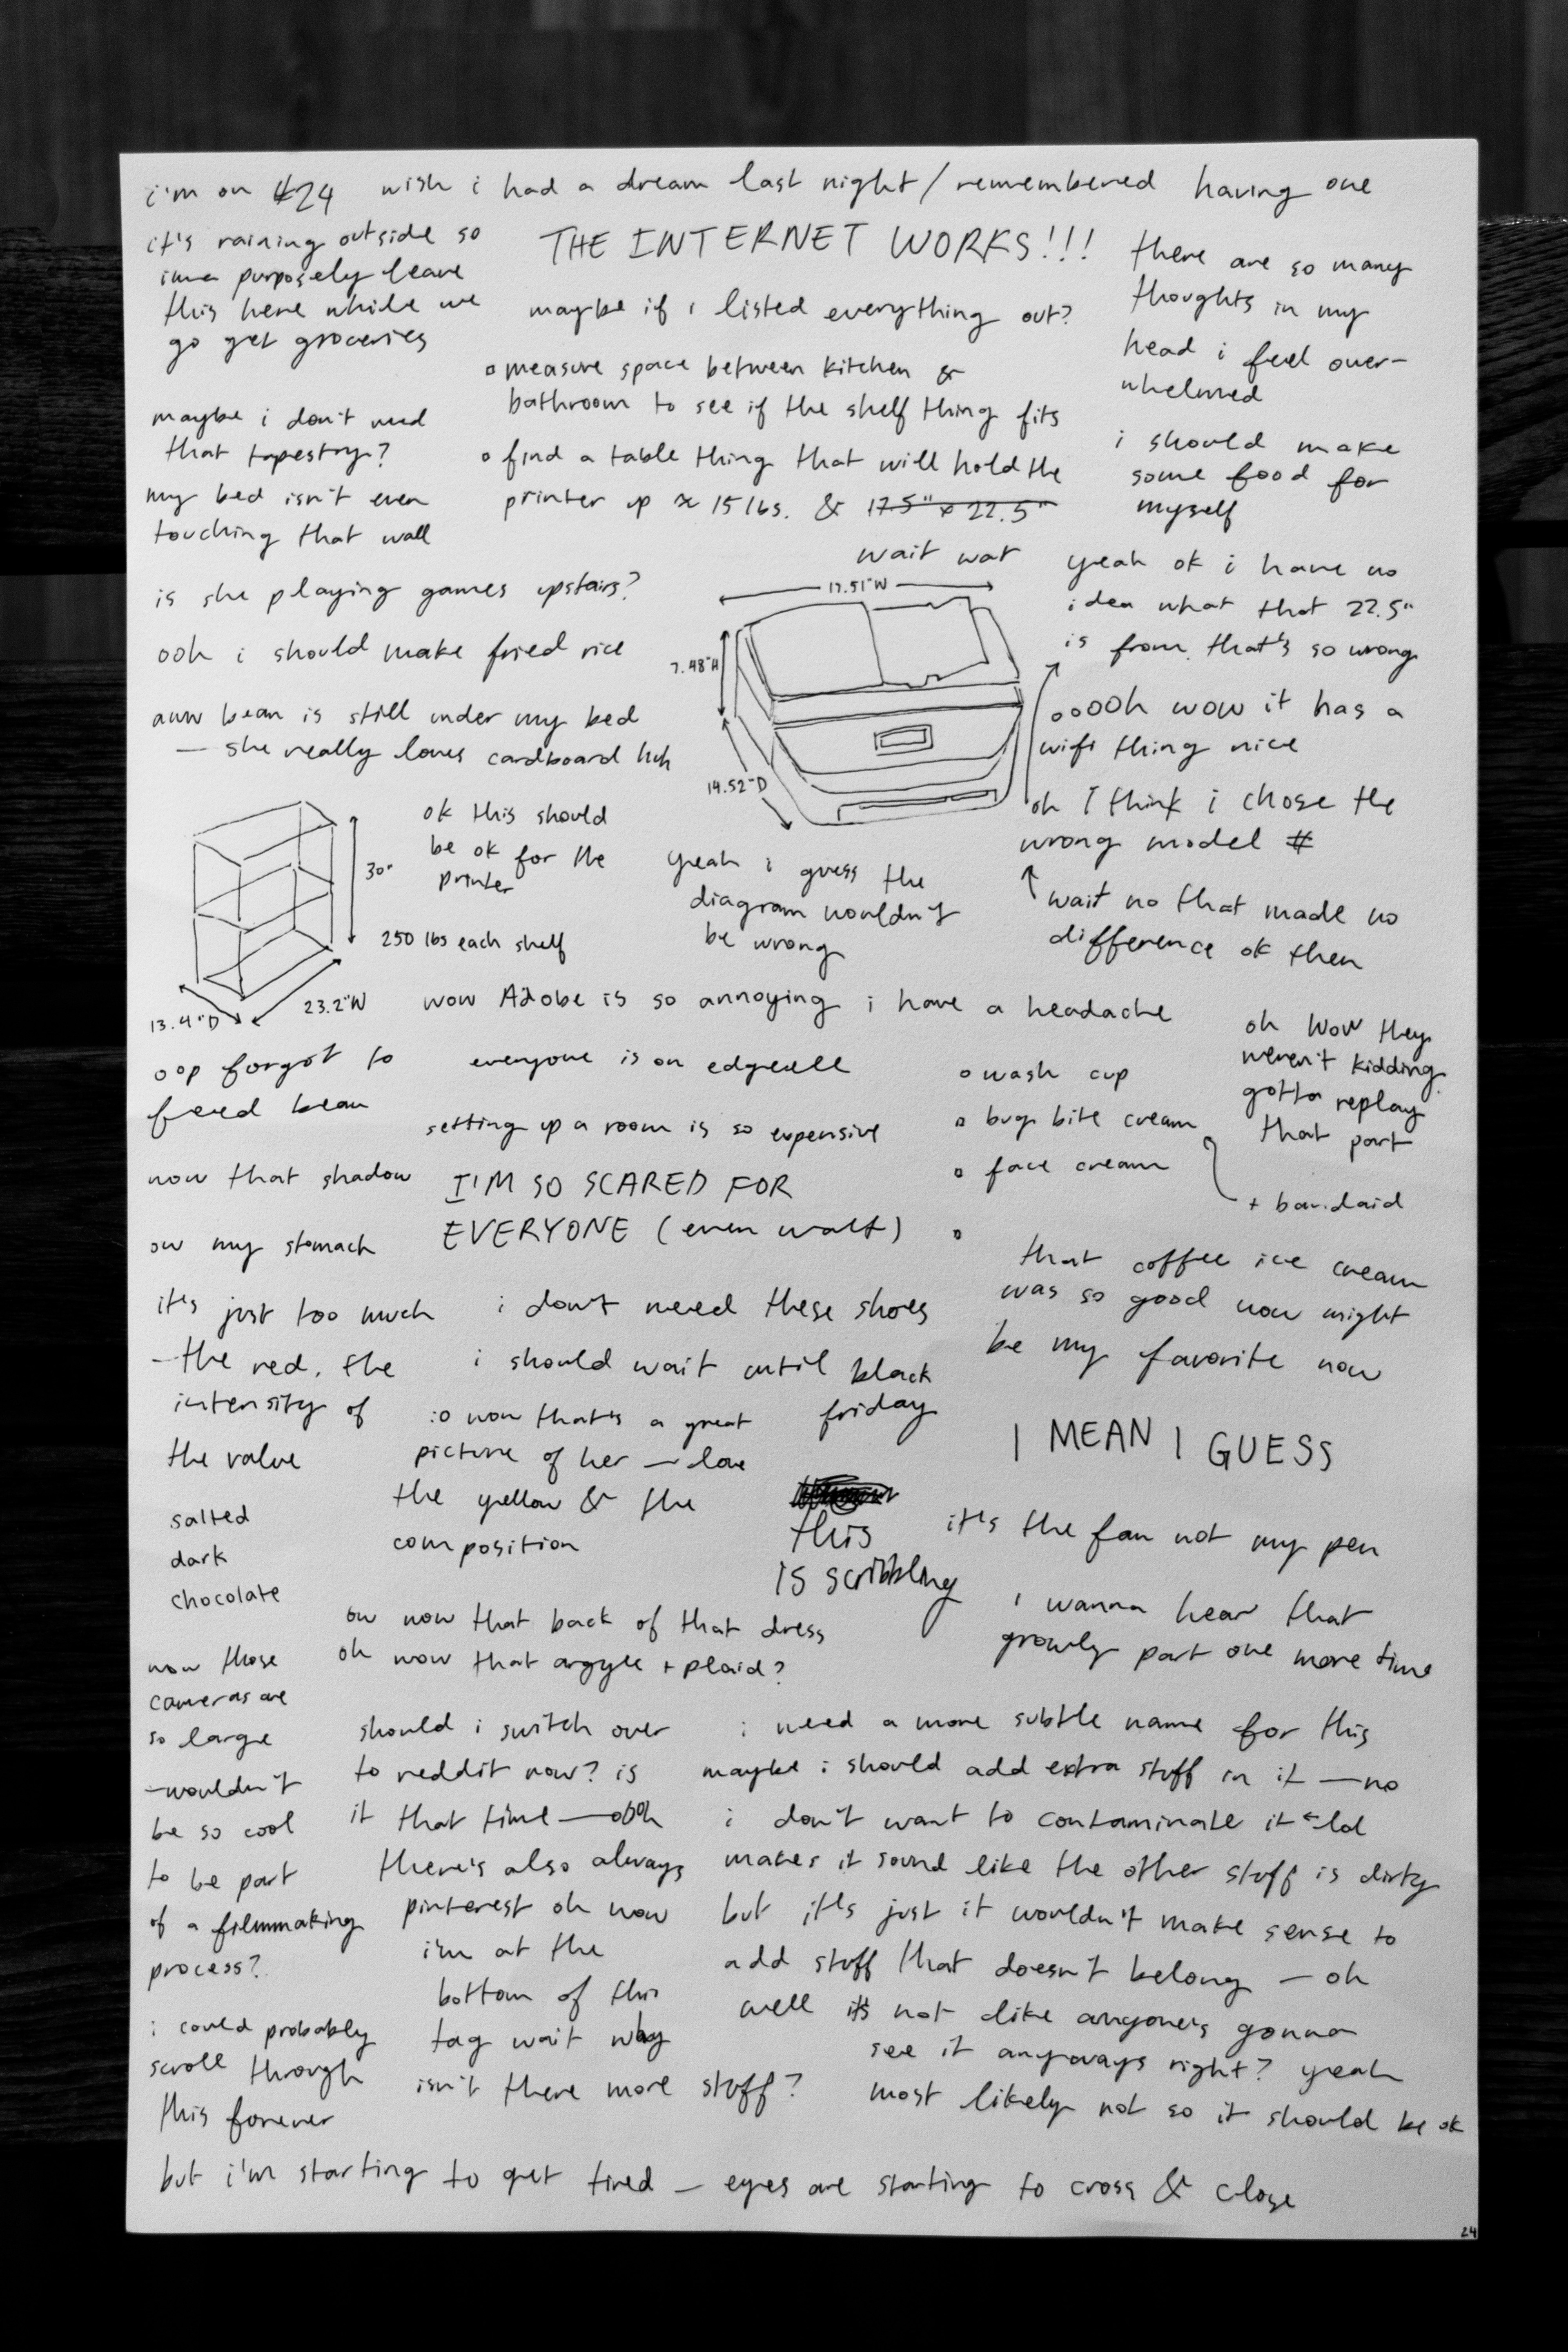 i'm on #24 wish i had a dream last night/remembered having one
it's raining outside so
imma purposely leave
this here while we
go get groceries
THE INTERNET WORKS!!!
maybe if i listed everything out?
measure space between kitchen &
bathroom to see if the shelf thing fits
find a table thing that will hold the
printer up ≈ 15 lbs. & 17.5" x 22.5"
there are so many
thoughts in my
head i feel over-
whelmed
i should make
some food for
myself
maybe i don't need
that tapestry?
my bed isn't even
touching that wall
is she playing games upstairs?
ooh i should make fried rice
aww bean is still under my bed
— she really loves cardboard huh
wait wat
17.51"W
7.48"H
14.52"D
yeah ok i have no
idea what that 22.5"
is from. that's so wrong
ooooh wow it has a
wifi thing nice
oh I think i chose the
wrong model #
wait no that made no
difference ok then
30"
23.2"W
13.4"D
ok this should
be ok for the
printer
250 lbs each shelf
yeah i guess the
diagram wouldn't
be wrong
wow Adobe is so annoying i have a headache
oop forgot to
feed bean
everyone is on
setting up a room is so expensive
wash cup
bug bite cream
face cream
+ bandaid
oh wow they
weren't kidding
gotta replay
that part
wow that shadow
I'M SO SCARED FOR
EVERYONE (even walt)
ow my stomach
that coffee ice cream
was so good wow might
be my favorite now
it's just too much
—the red. the
intensity of
the value
i don't need these shoes
i should wait until black
friday
:o wow that's a great
picture of her — love
the yellow & the
composition
I MEAN I GUESS
salted
dark
chocolate
this
IS scribbling
it's the fan not my pen
i wanna hear that
growly part one more time
ow wow that back of that dress
oh wow that argyle + plaid?
wow those
cameras are
so large
—wouldn't
be so cool
to be part
of a filmmaking
process?
should i switch over
to reddit now? is
it that time — oooh
there's also always
pinterest oh wow
i'm at the
bottom of this
tag wait why
isn't there more stuff?
i need a more subtle name for this
maybe i should add extra stuff in it — no
i don't want to contaminate it lol
makes it sound like the other stuff is dirty
but it's just it wouldn't make sense to
add stuff that doesn't belong — oh
well it's not like anyone's gonna
see it anyways right? yeah
most likely not so it should be ok
i could probably
scroll through
this forever
but i'm starting to get tired — eyes are starting to cross & close
24